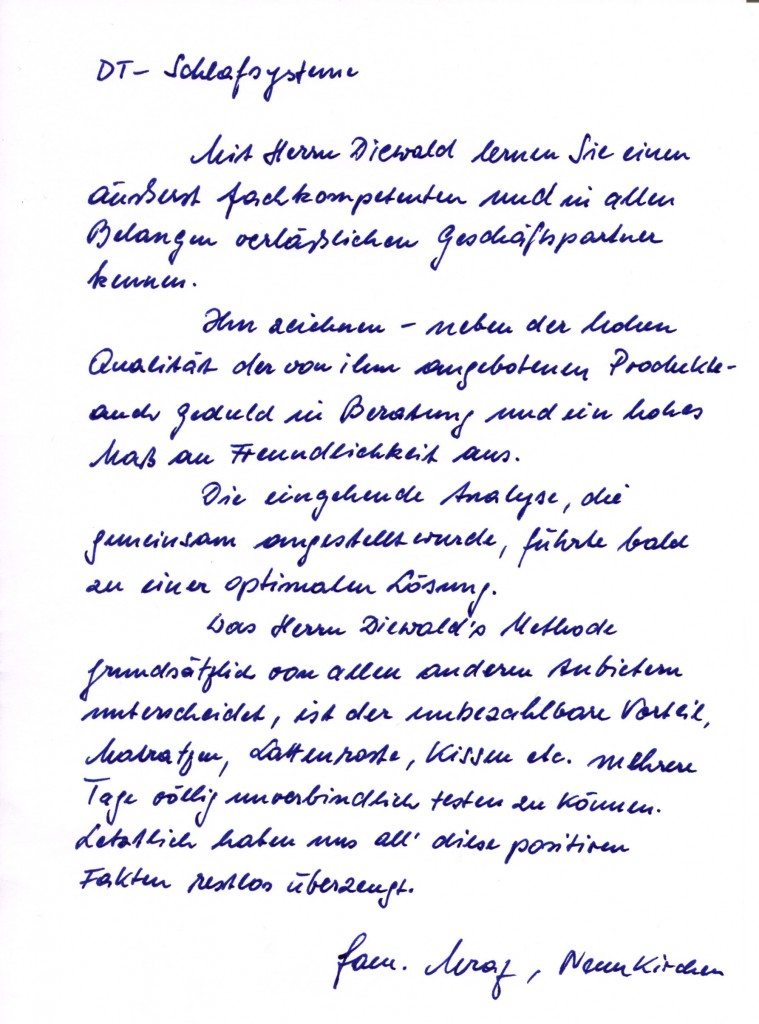 DT- Schlafsysteme
Mit Herrn Diewald lernen Sie einen
äußerst fachkompetenten und in allen
Belangen verläßlichen Geschäftspartner
kennen.
Ihn zeichnen - neben der hohen
Qualität der von ihm angebotenen Produkte-
auch Geduld in Beratung und ein hohes
Maß an Freundlichkeit aus.
Die eingehende Analyse, die
gemeinsam angestellt wurde, führte bald
zu einer optimalen Lösung.
Was Herrn Diewald's Methode
grundsätzlich von allen anderen Anbietern
unterscheidet, ist der unbezahlbare Vorteil,
Matratzen, Lattenroste, Kissen etc. mehrere
Tage völlig unverbindlich testen zu können.
Letztlich haben uns all' diese positiven
Fakten restlos überzeugt.
Fam. , Neunkirchen